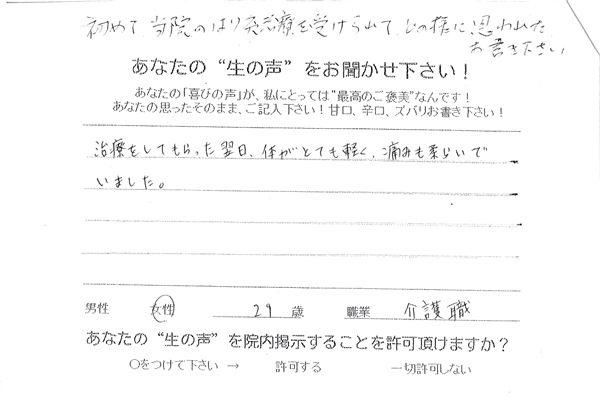 初めて当院のはり灸治療を受けられて、どの様に思われたか
お書き下さい
あなたの“生の声”をお聞かせ下さい！
あなたの「喜びの声」が、私にとっては“最高のご褒美”なんです！
あなたの思ったそのまま、ご記入下さい！甘口、辛口、ズバリお書き下さい！
治療をしてもらった翌日、体がとても軽く、痛みも柔らいで
いました。
男性 女性 29 歳 職業 介護職
あなたの“生の声”を院内掲示することを許可頂けますか？
○をつけて下さい → 許可する 一切許可しない